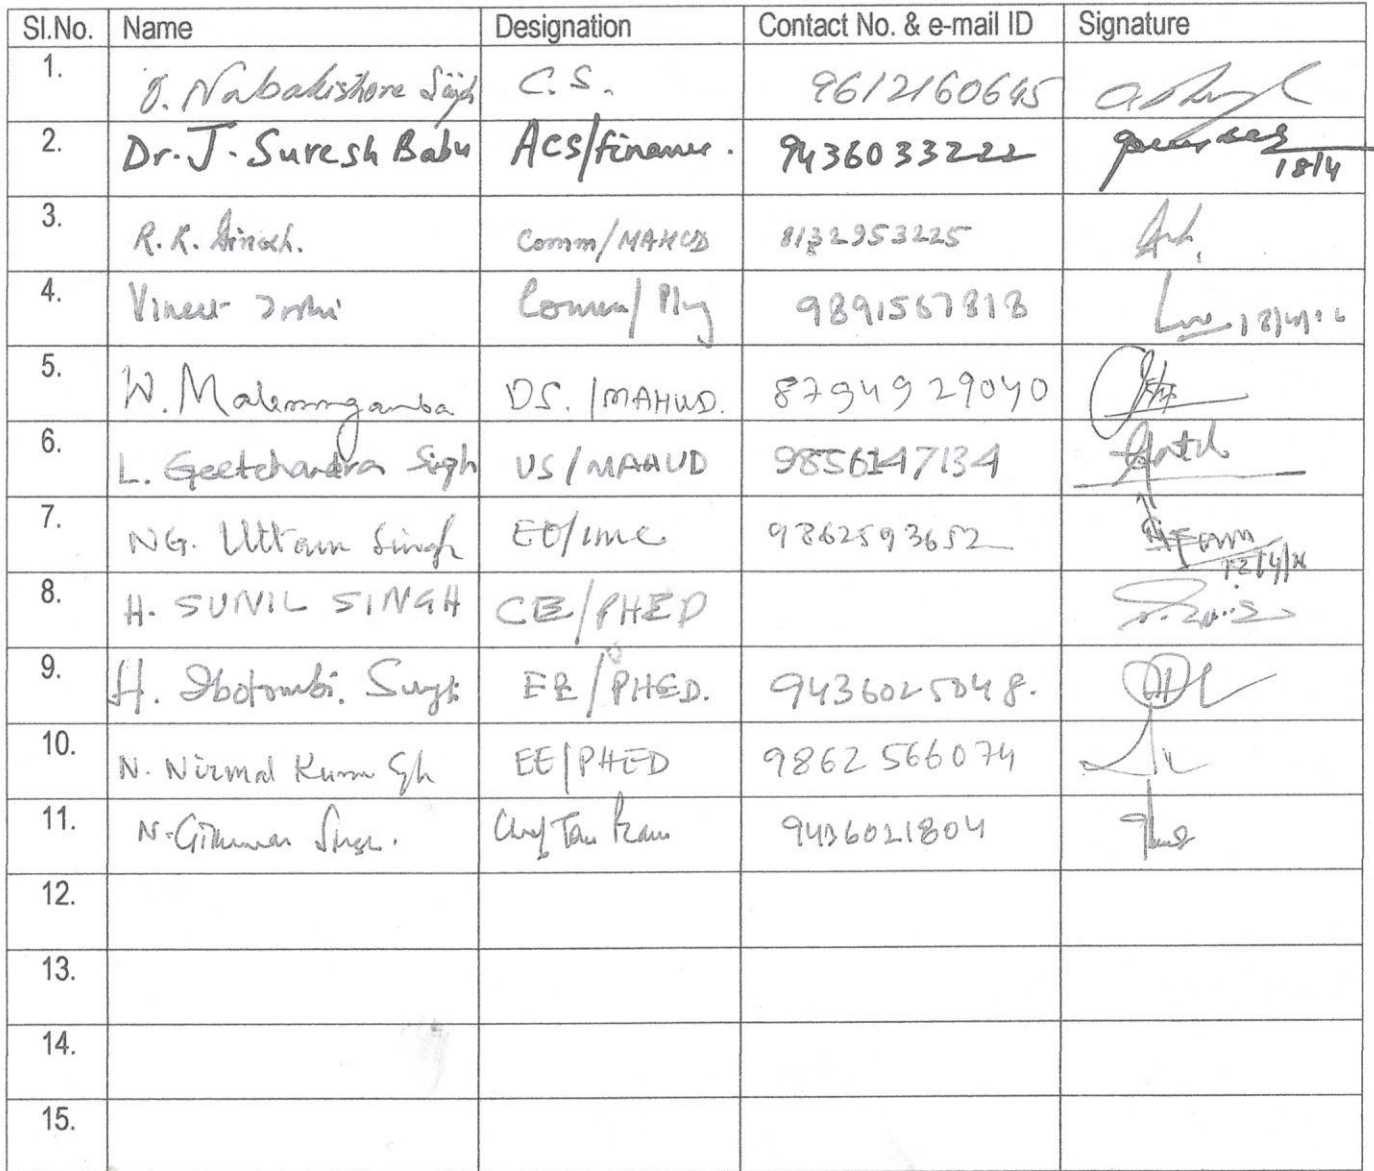 Sl.No. Name Designation Contact No. & e-mail ID Signature
1. O. Nabakishore Singh C.S. 9612160645
2. Dr. J. Suresh Babu ACS/finance. 9436033222 18/4
3. R.K. Comm/MAHUD 8132953225
4. Vineet Joshi Comm/Plg 9891567818
5. W. Malemnganba DS. /MAHUD. 8794929040
6. L. Geetchandra Singh US/MAHUD 9856147134
7. NG. Uttam Singh EO/imc 9862593652
8. H. SUNIL SINGH CE/PHED
9. H. Ibotombi. Singh EE/PHED. 9436025048.
10. N. Nirmal Kumar Sgh EE/PHED 9862566074
11. N. Singh. 9436021804
12.
13.
14.
15.